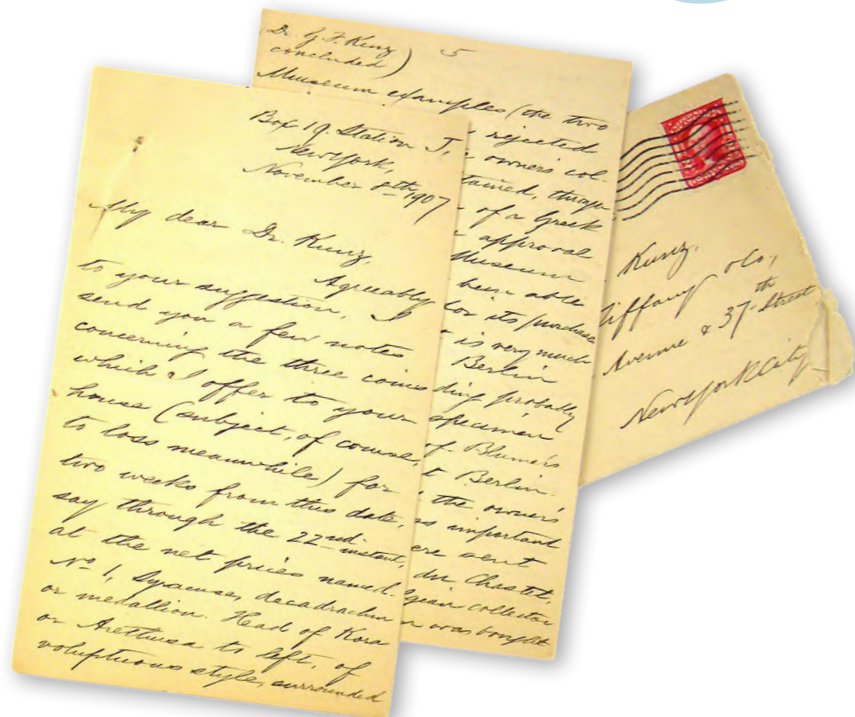 Box 19 Station J,
New York,
November 8th, 1907
My dear Dr. Kunz,
Agreeably
to your suggestion, I
send you a few notes
concerning the three coins
which I offer to your
house (subject, of course,
to loss meanwhile) for
two weeks from this date,
say through the 22nd instant,
at the net prices named.
No 1, Syracuse, decadrachm
or medallion. Head of Kora
or Arethusa to left, of
voluptuous style, surrounded
(Dr. G. F. Kunz) 5
concluded
Museum examples (the two
rejected
owners col-
tained, though
of a Greek
approval
Museum
been able
for its purchase
is very much
Berlin
ding probably
specimen
of. Blumer's
t Berlin.
the owner's
as important
ere sent
du Chastel,
lgian collector
was bought
Kunz,
Tiffany & Co,
Avenue & 37th Street
New York City